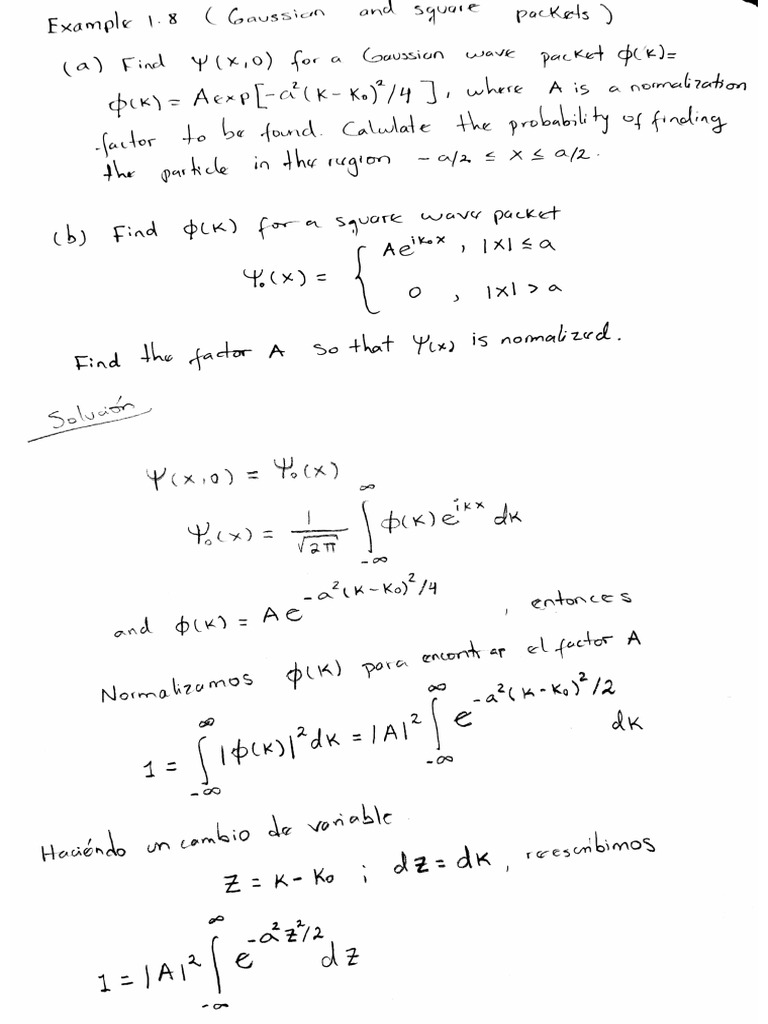 Example 1.8 (Gaussian and square packets)
(a) Find Ψ(x,0) for a Gaussian wave packet ϕ(k)=
ϕ(k) = A exp[-a²(k-k₀)²/4], where A is a normalization
factor to be found. Calculate the probability of finding
the particle in the region -a/2 ≤ x ≤ a/2.
(b) Find ϕ(k) for a square wave packet
Ψ₀(x) = { Ae^{ik₀x}, |x| ≤ a
0, |x| > a
Find the factor A so that Ψ(x) is normalized.
Solución
Ψ(x,0) = Ψ₀(x)
Ψ₀(x) = 1/√2π ∫_{-∞}^{∞} ϕ(k) e^{ikx} dk
and ϕ(k) = A e^{-a²(k-k₀)²/4}, entonces
Normalizamos ϕ(k) para encontrar el factor A
1 = ∫_{-∞}^{∞} |ϕ(k)|² dk = |A|² ∫_{-∞}^{∞} e^{-a²(k-k₀)²/2} dk
Haciéndo un cambio de variable
z = k - k₀ ; dz = dk, reescribimos
1 = |A|² ∫_{-∞}^{∞} e^{-a²z²/2} dz